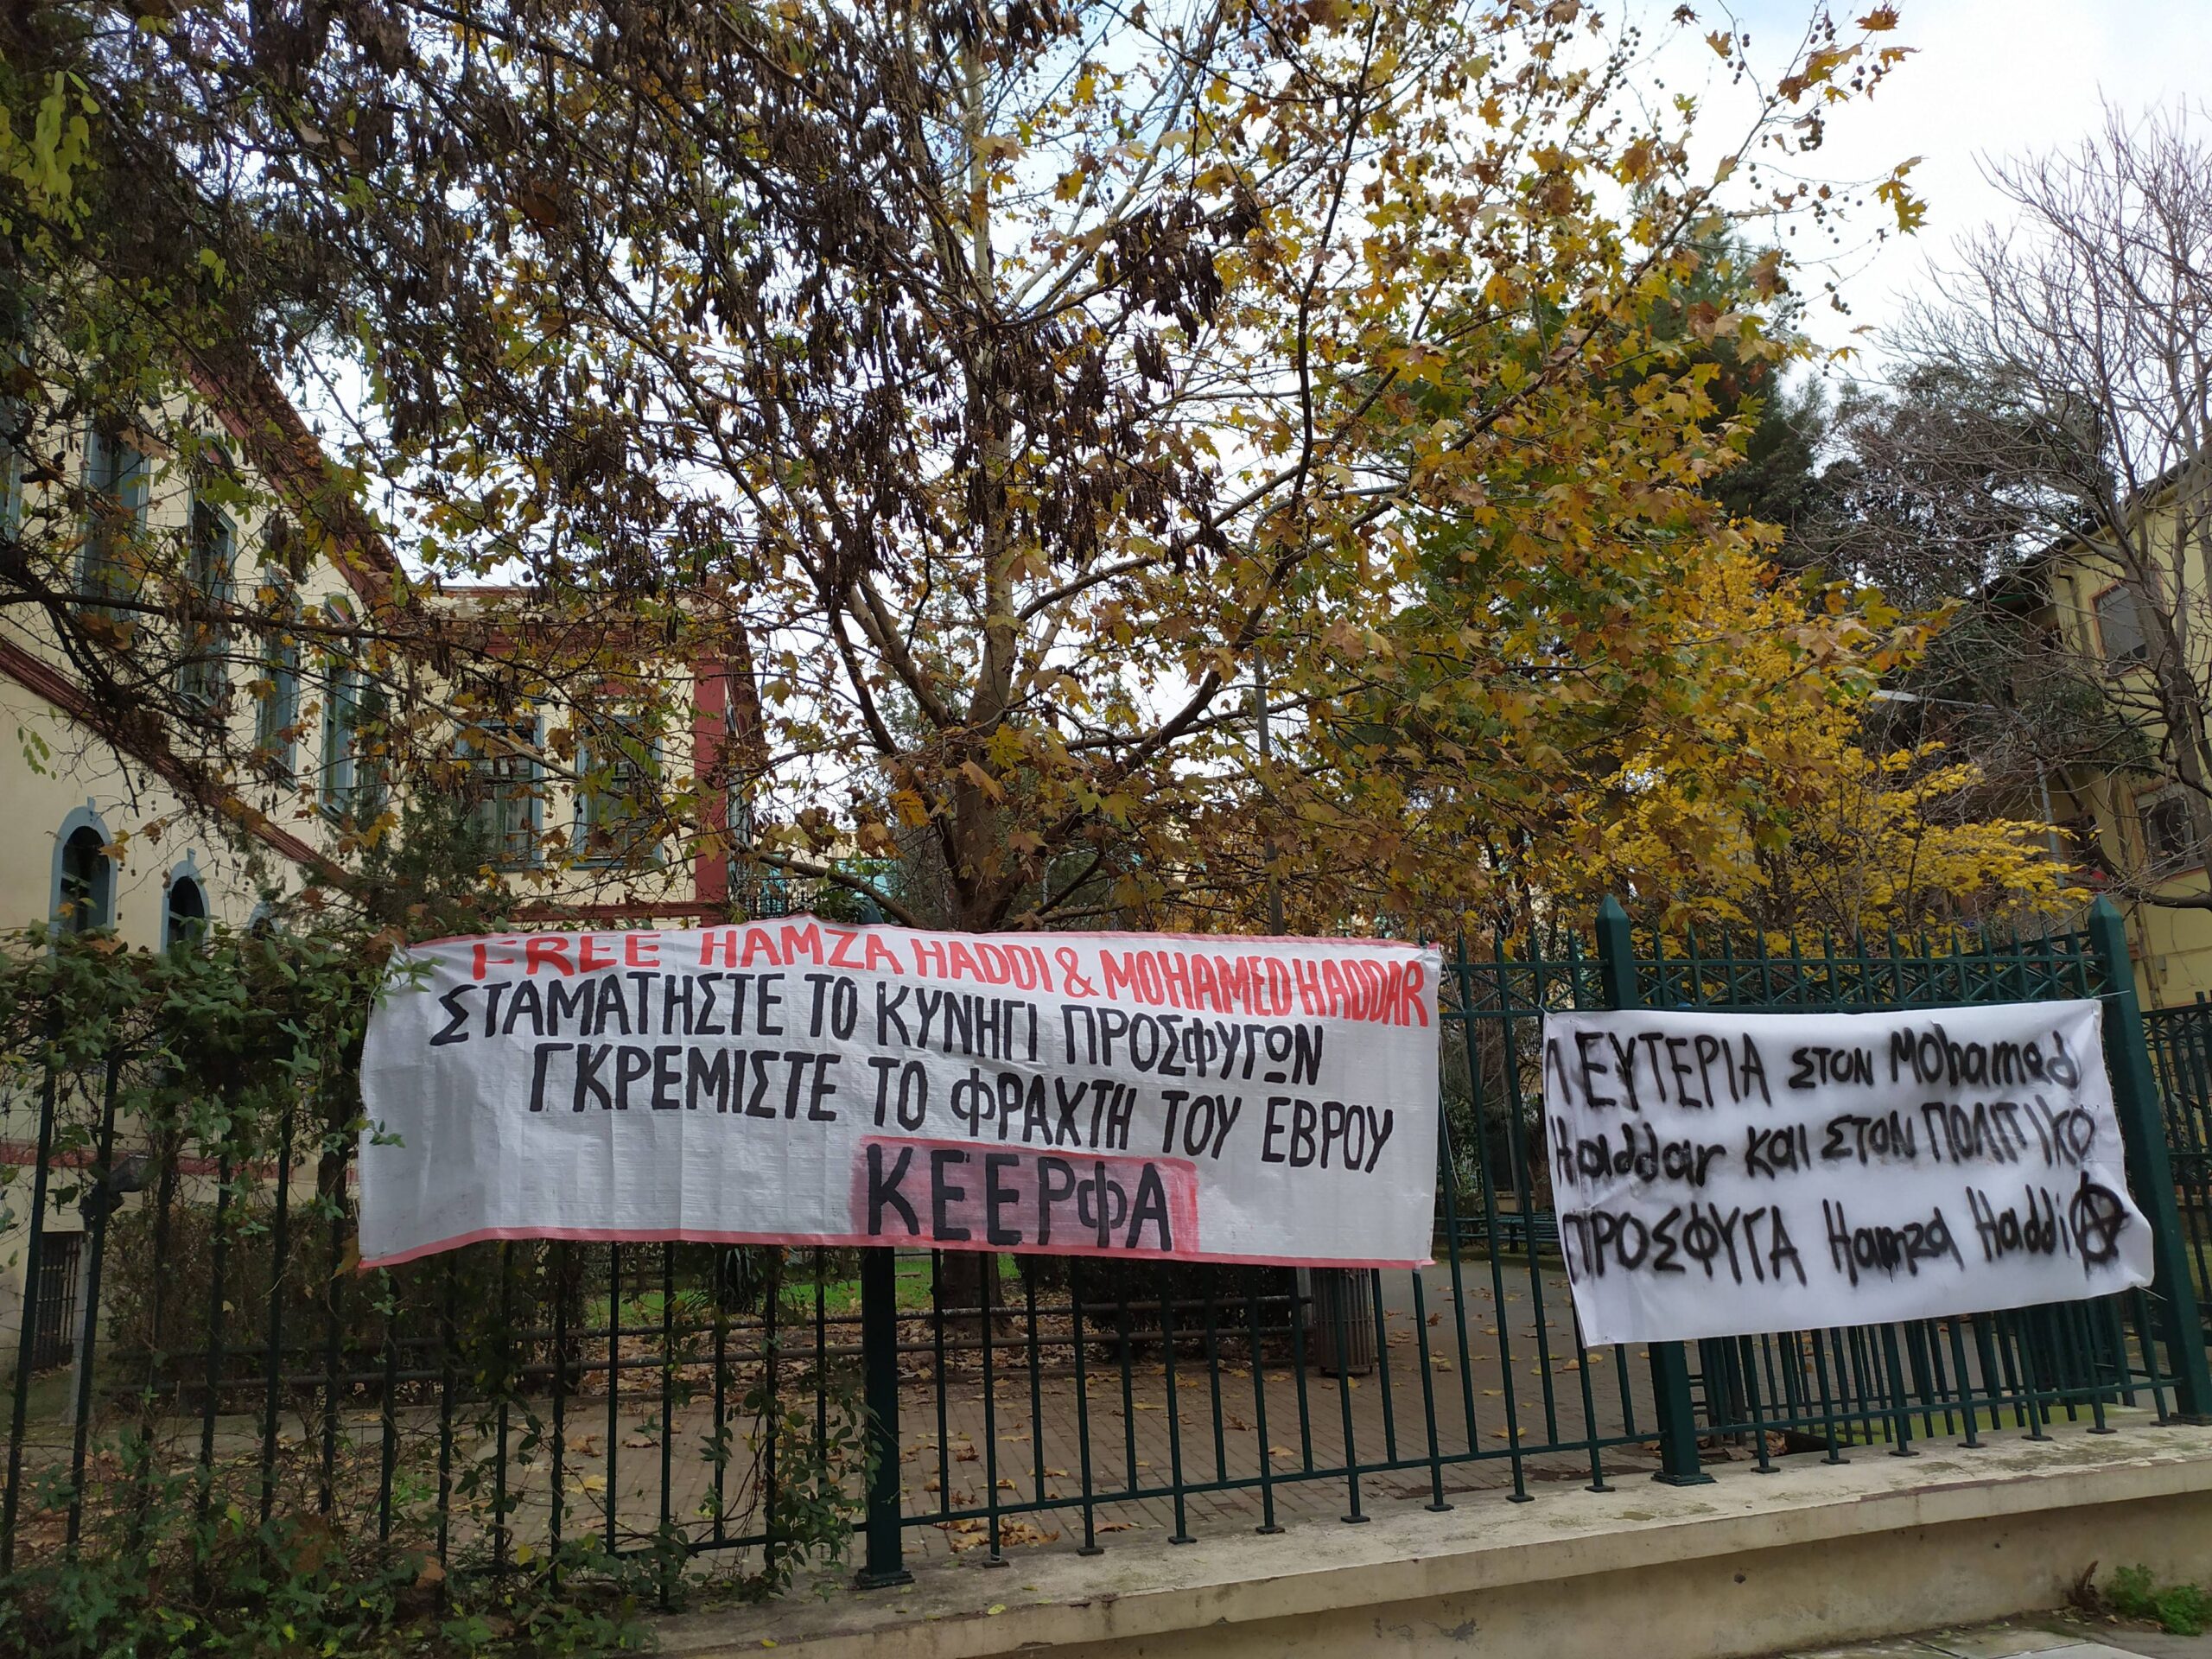 FREE HAMZA HADDI & MOHAMED HADDAR
ΣΤΑΜΑΤΗΣΤΕ ΤΟ ΚΥΝΗΓΙ ΠΡΟΣΦΥΓΩΝ
ΓΚΡΕΜΙΣΤΕ ΤΟ ΦΡΑΧΤΗ ΤΟΥ ΕΒΡΟΥ
ΚΕΕΡΦΑ
ΛΕΥΤΕΡΙΑ ΣΤΟΝ Mohamed
Haddar και ΣΤΟΝ ΠΟΛΙΤΙΚΟ
ΠΡΟΣΦΥΓΑ Hamza Haddi